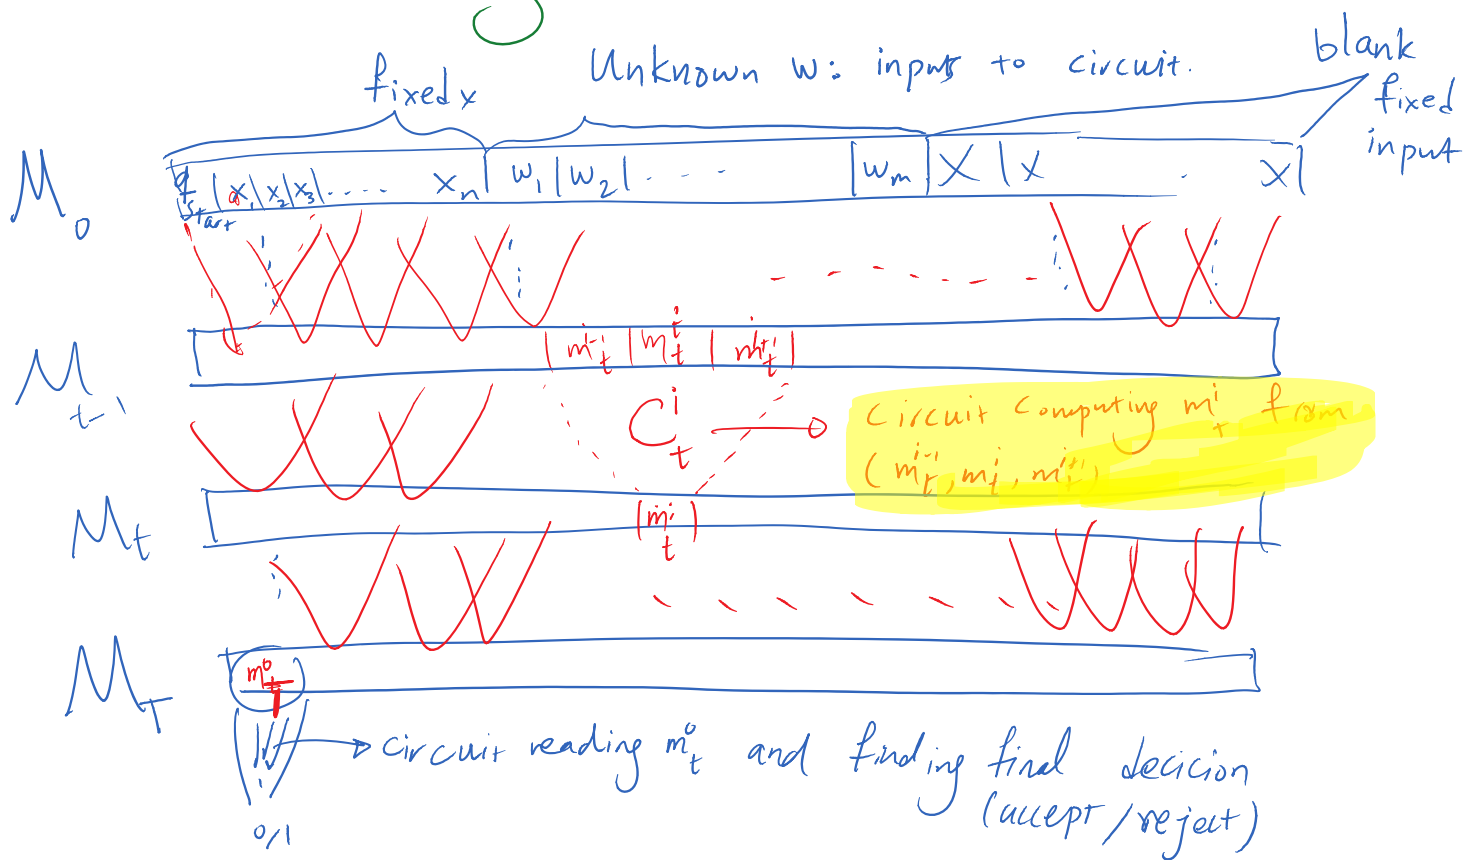 Unknown w: inputs to circuit.
blank
fixed
input
fixed x
M₀
q start | x₁ | x₂ | x₃ | .... xₙ | w₁ | w₂ | .... | wₘ | X | X . X |
M_{t-1}
| m_t^{i-1} | m_t^i | m_t^{i+1} |
C_t^i
circuit computing m_t^i from
(m_t^{i-1}, m_t^i, m_t^{i+1})
M_t
| m_t^i |
M_T
m_T^0
circuit reading m_t^0 and finding final decicion
(accept/reject)
0/1